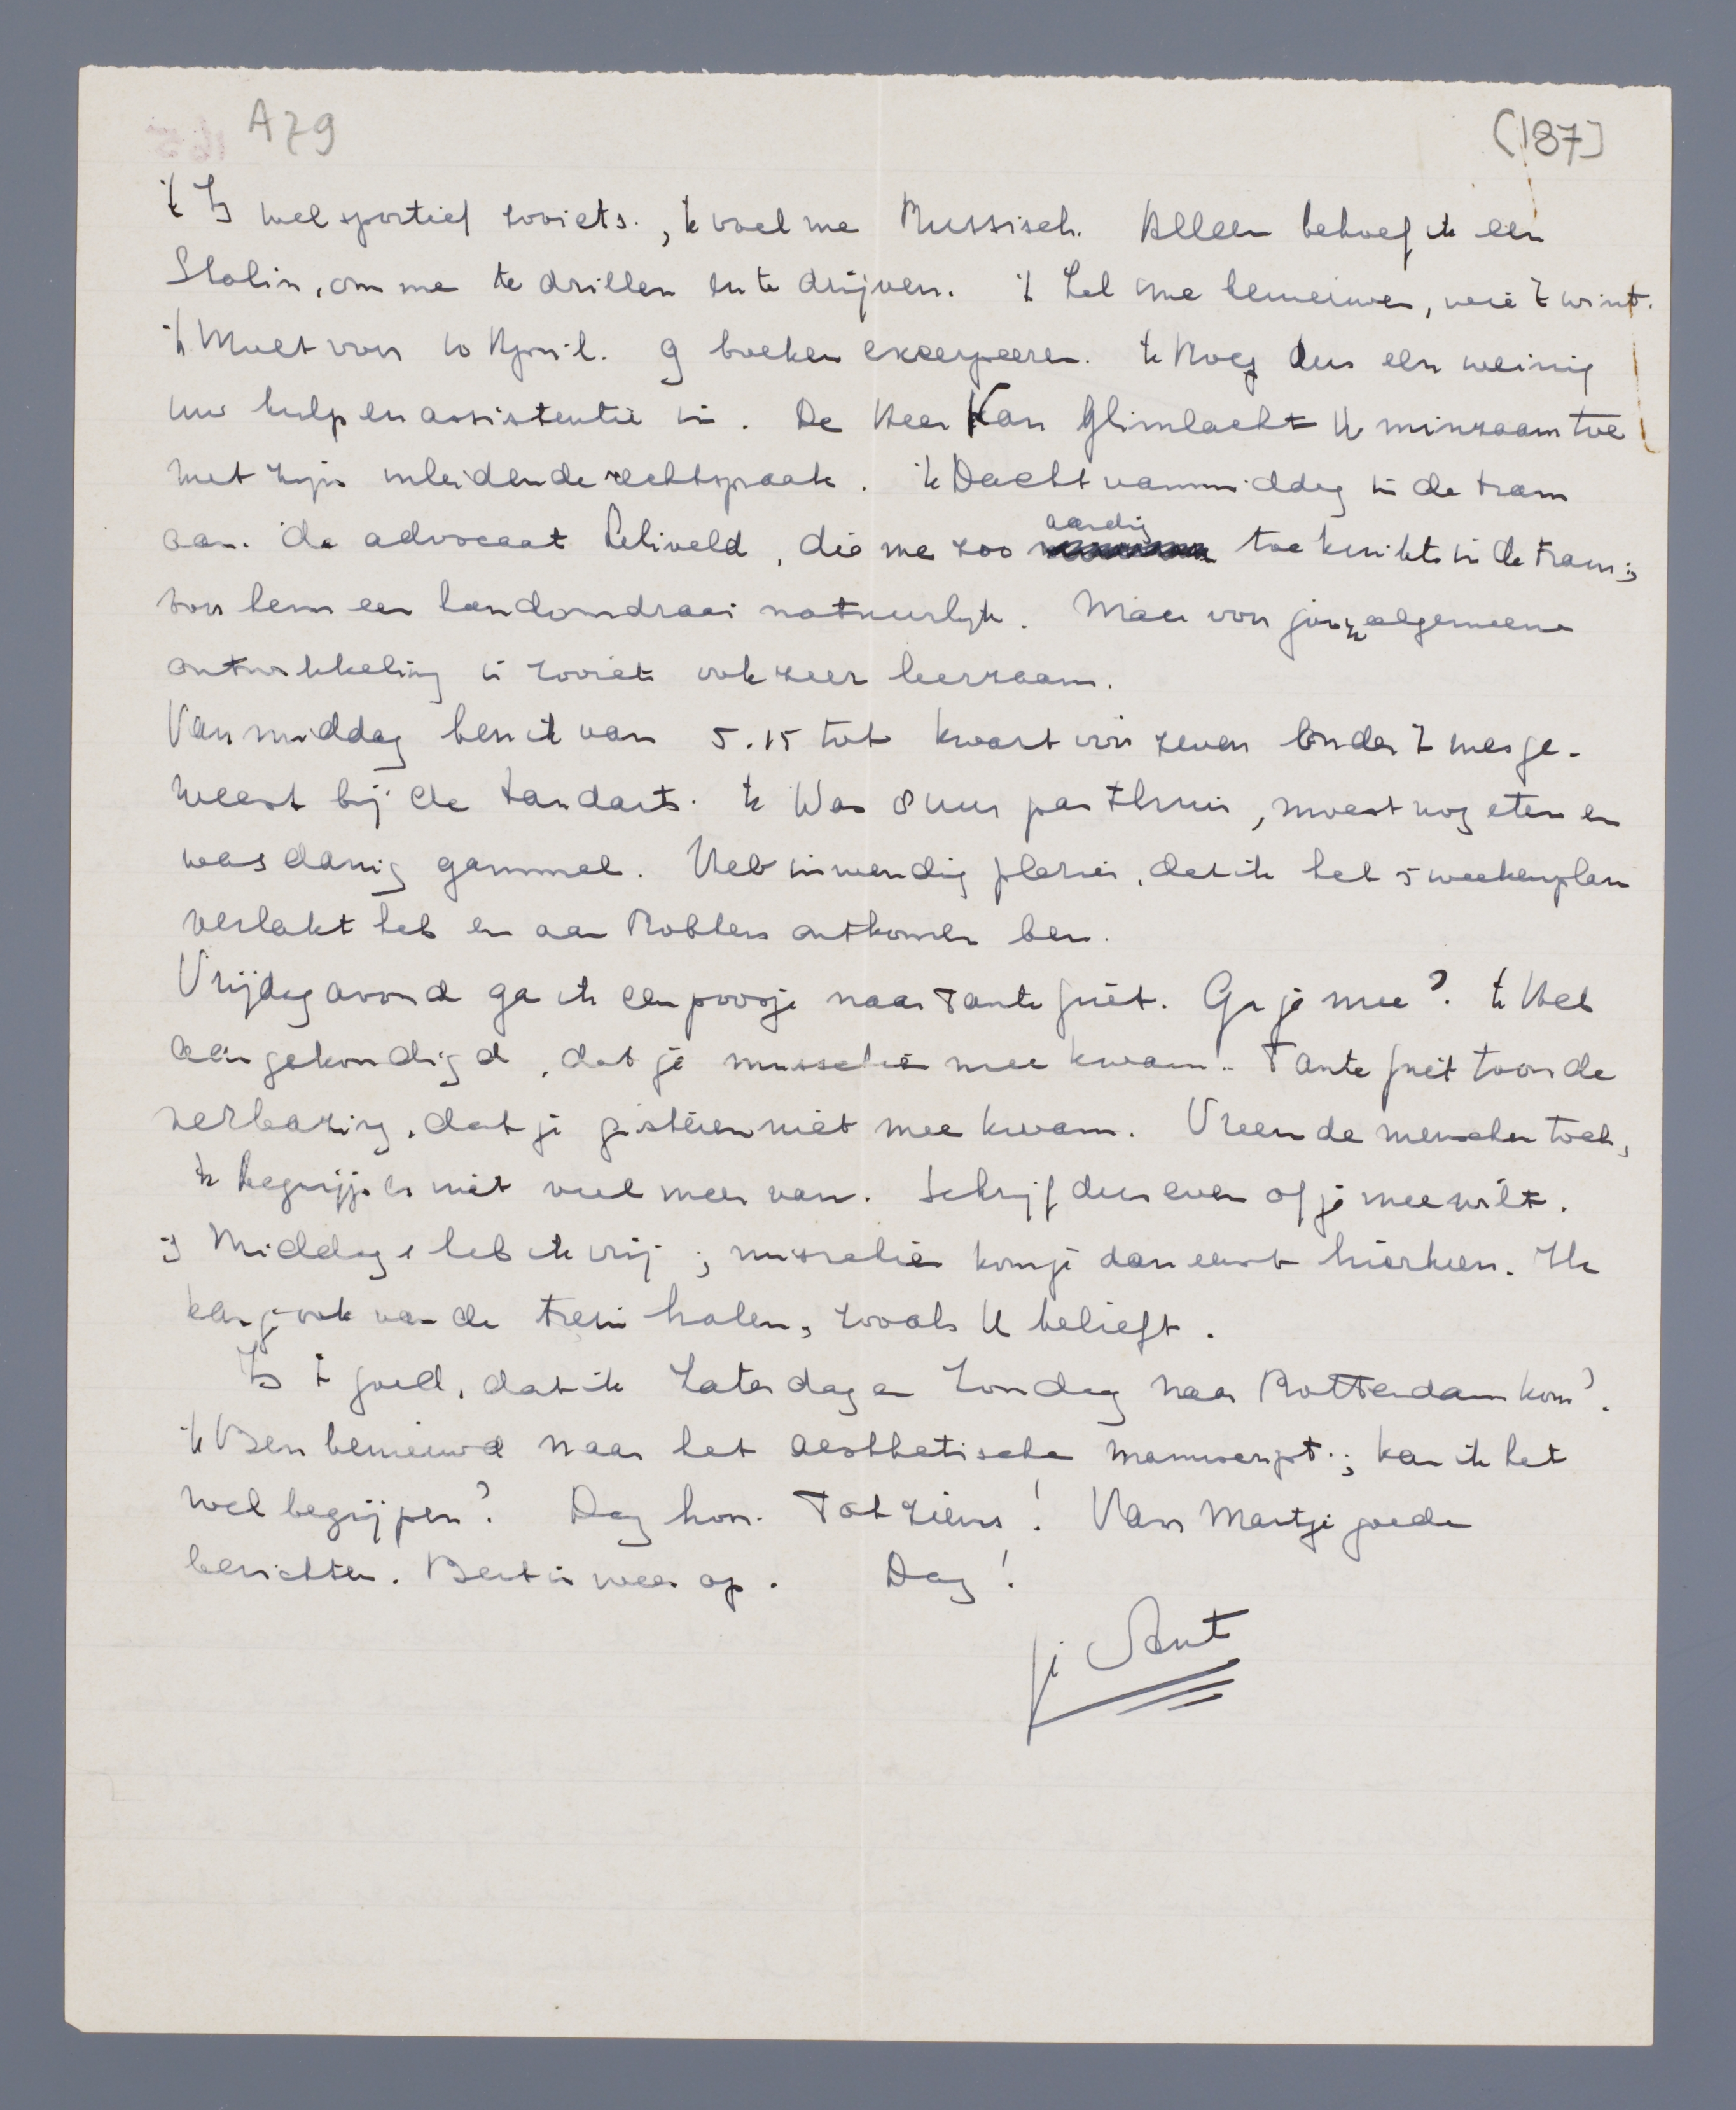 A79
(187]
't Is wel sportief zooiets., 'k voel me Russisch. Alleen behoef ik een
Stalin, om me te drillen en te drijven. 'k Zal me benieuwen, wie 't wint.
'k Moet voor 10 April. 9 boeken excerpeeren. 'k Roep dus een weinig
uw hulp en assistentie in. De Heer Kan Glimlacht U minzaam toe
met zijn inleidende rechtspraak. 'k Dacht vanmiddag in de tram
aan de advocaat Leliveld, die me zoo aardig toeknikte in de tram;
voor hem een handomdraai natuurlijk. Maar voor jouw algemeene
ontwikkeling is zooiets ook zeer leerzaam.
Van middag ben ik van 5.15 tot kwart voor zeven onder 't mes ge-
weest bij de tandarts. 'k Was 8 uur pas thuis, moest nog eten en
was danig gammel. Heb inwendig plezier, dat ik het 5 weekenplan
verlakt heb en aan Robbers ontkomen ben.
Vrijdagavond ga ik een poosje naar Tante Griet. Ga je mee? 'k Heb
aangekondigd, dat je misschien mee kwam. Tante Griet toonde
verbazing, dat je gisteren niet mee kwam. Vreemde menschen toch,
'k begrijp er niet veel meer van. Schrijf dus even of je mee wilt.
's Middags heb ik vrij; misschien kom je dan eerst hierheen. Ik
kan je ook van de trein halen, zooals U belieft.
Is 't goed, dat ik Zaterdag en Zondag naar Rotterdam kom?
'k Ben benieuwd naar het aesthetische manuscript.; kan ik het
wel begrijpen? Dag hoor. Tot ziens! Van Martje goede
berichten. Bert is weer op. Dag!
je Ant